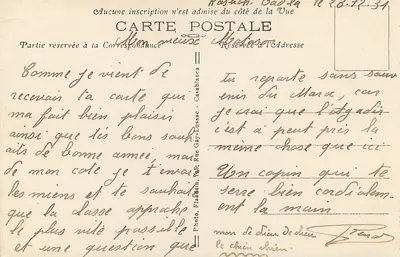 Kasbah Tadla le 28-12-31
Aucune inscription n'est admise du côté de la Vue
CARTE POSTALE
Partie réservée à la Correspondance
Réservée à l'Adresse
Mon vieux
Comme je vient de
recevoir ta carte qui
ma fait bien plaisir
ainsi que tès bons souh-
aits de bonne année, mai
de mon coté je t'envoi
les miens et te souhaite
que la classe approche
le plus vité possible
et une question que
Photo. Flandrin, Rue Gay-Lussac - Casablanca
tu reparte sans souv-
enis du Maroc, car
je crai que l'Agadir
c'est à peut près la
même chose que ici
Un copin qui te
serre bien cordialem-
ent la main
nom de dieu de dieu
le chien